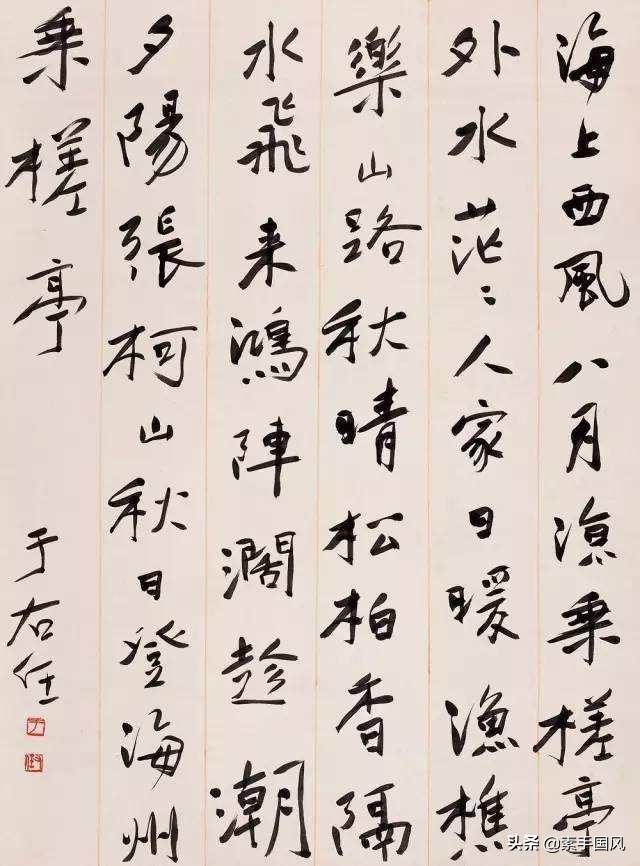 海上西風八月涼乘槎亭
外水茫々人家日暖漁樵
樂山路秋晴松柏香隔
水飛来鴻陣濶趁潮
夕陽張柯山秋日登海州
乘槎亭
于右任
头条 @素手国风